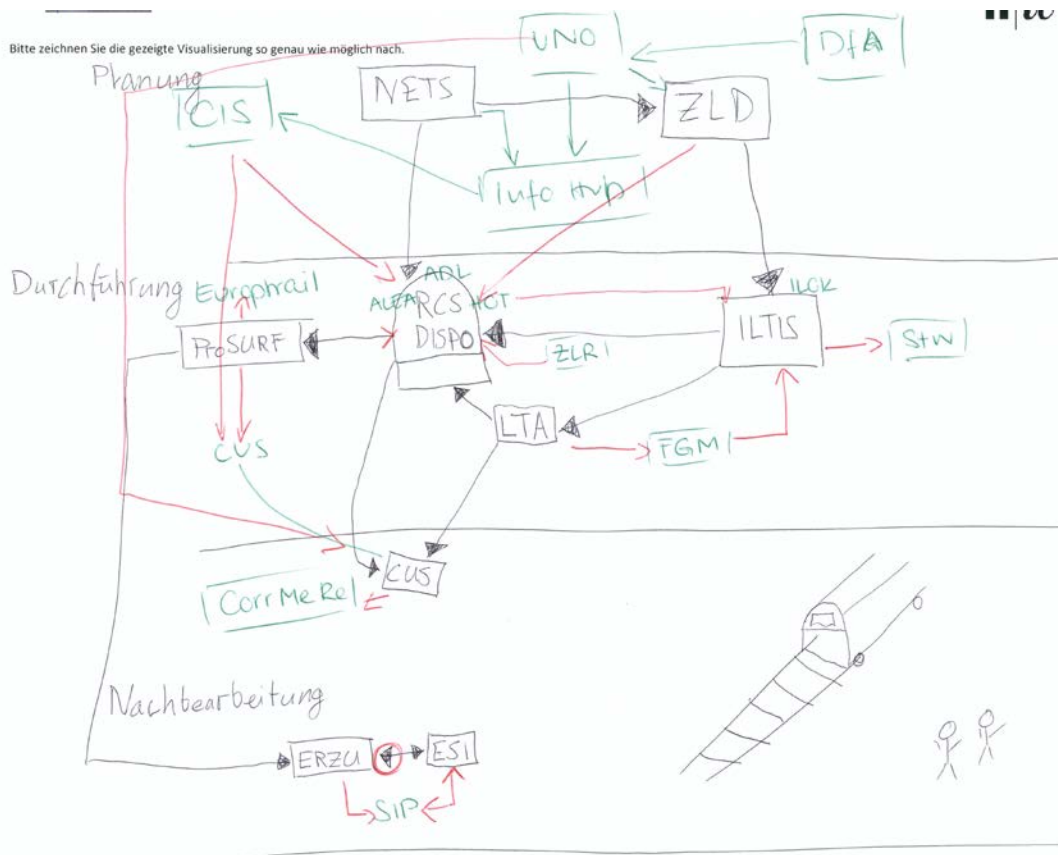 Bitte zeichnen Sie die gezeigte Visualisierung so genau wie möglich nach.
UNO
DfA
Planung
CIS
NETS
ZLD
Info Hub
Durchführung
Europtirail
ADL
ALEA RCS HOT
DISPO
ILOK
ILTIS
ProSURF
ZLR
StW
LTA
FGM
CUS
CUS
CorrMeRe
Nachbearbeitung
ERZU
ESI
SIP